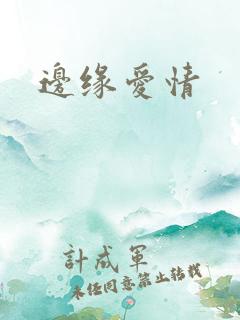 邊缘愛情
計成軍
未经同意禁止转载